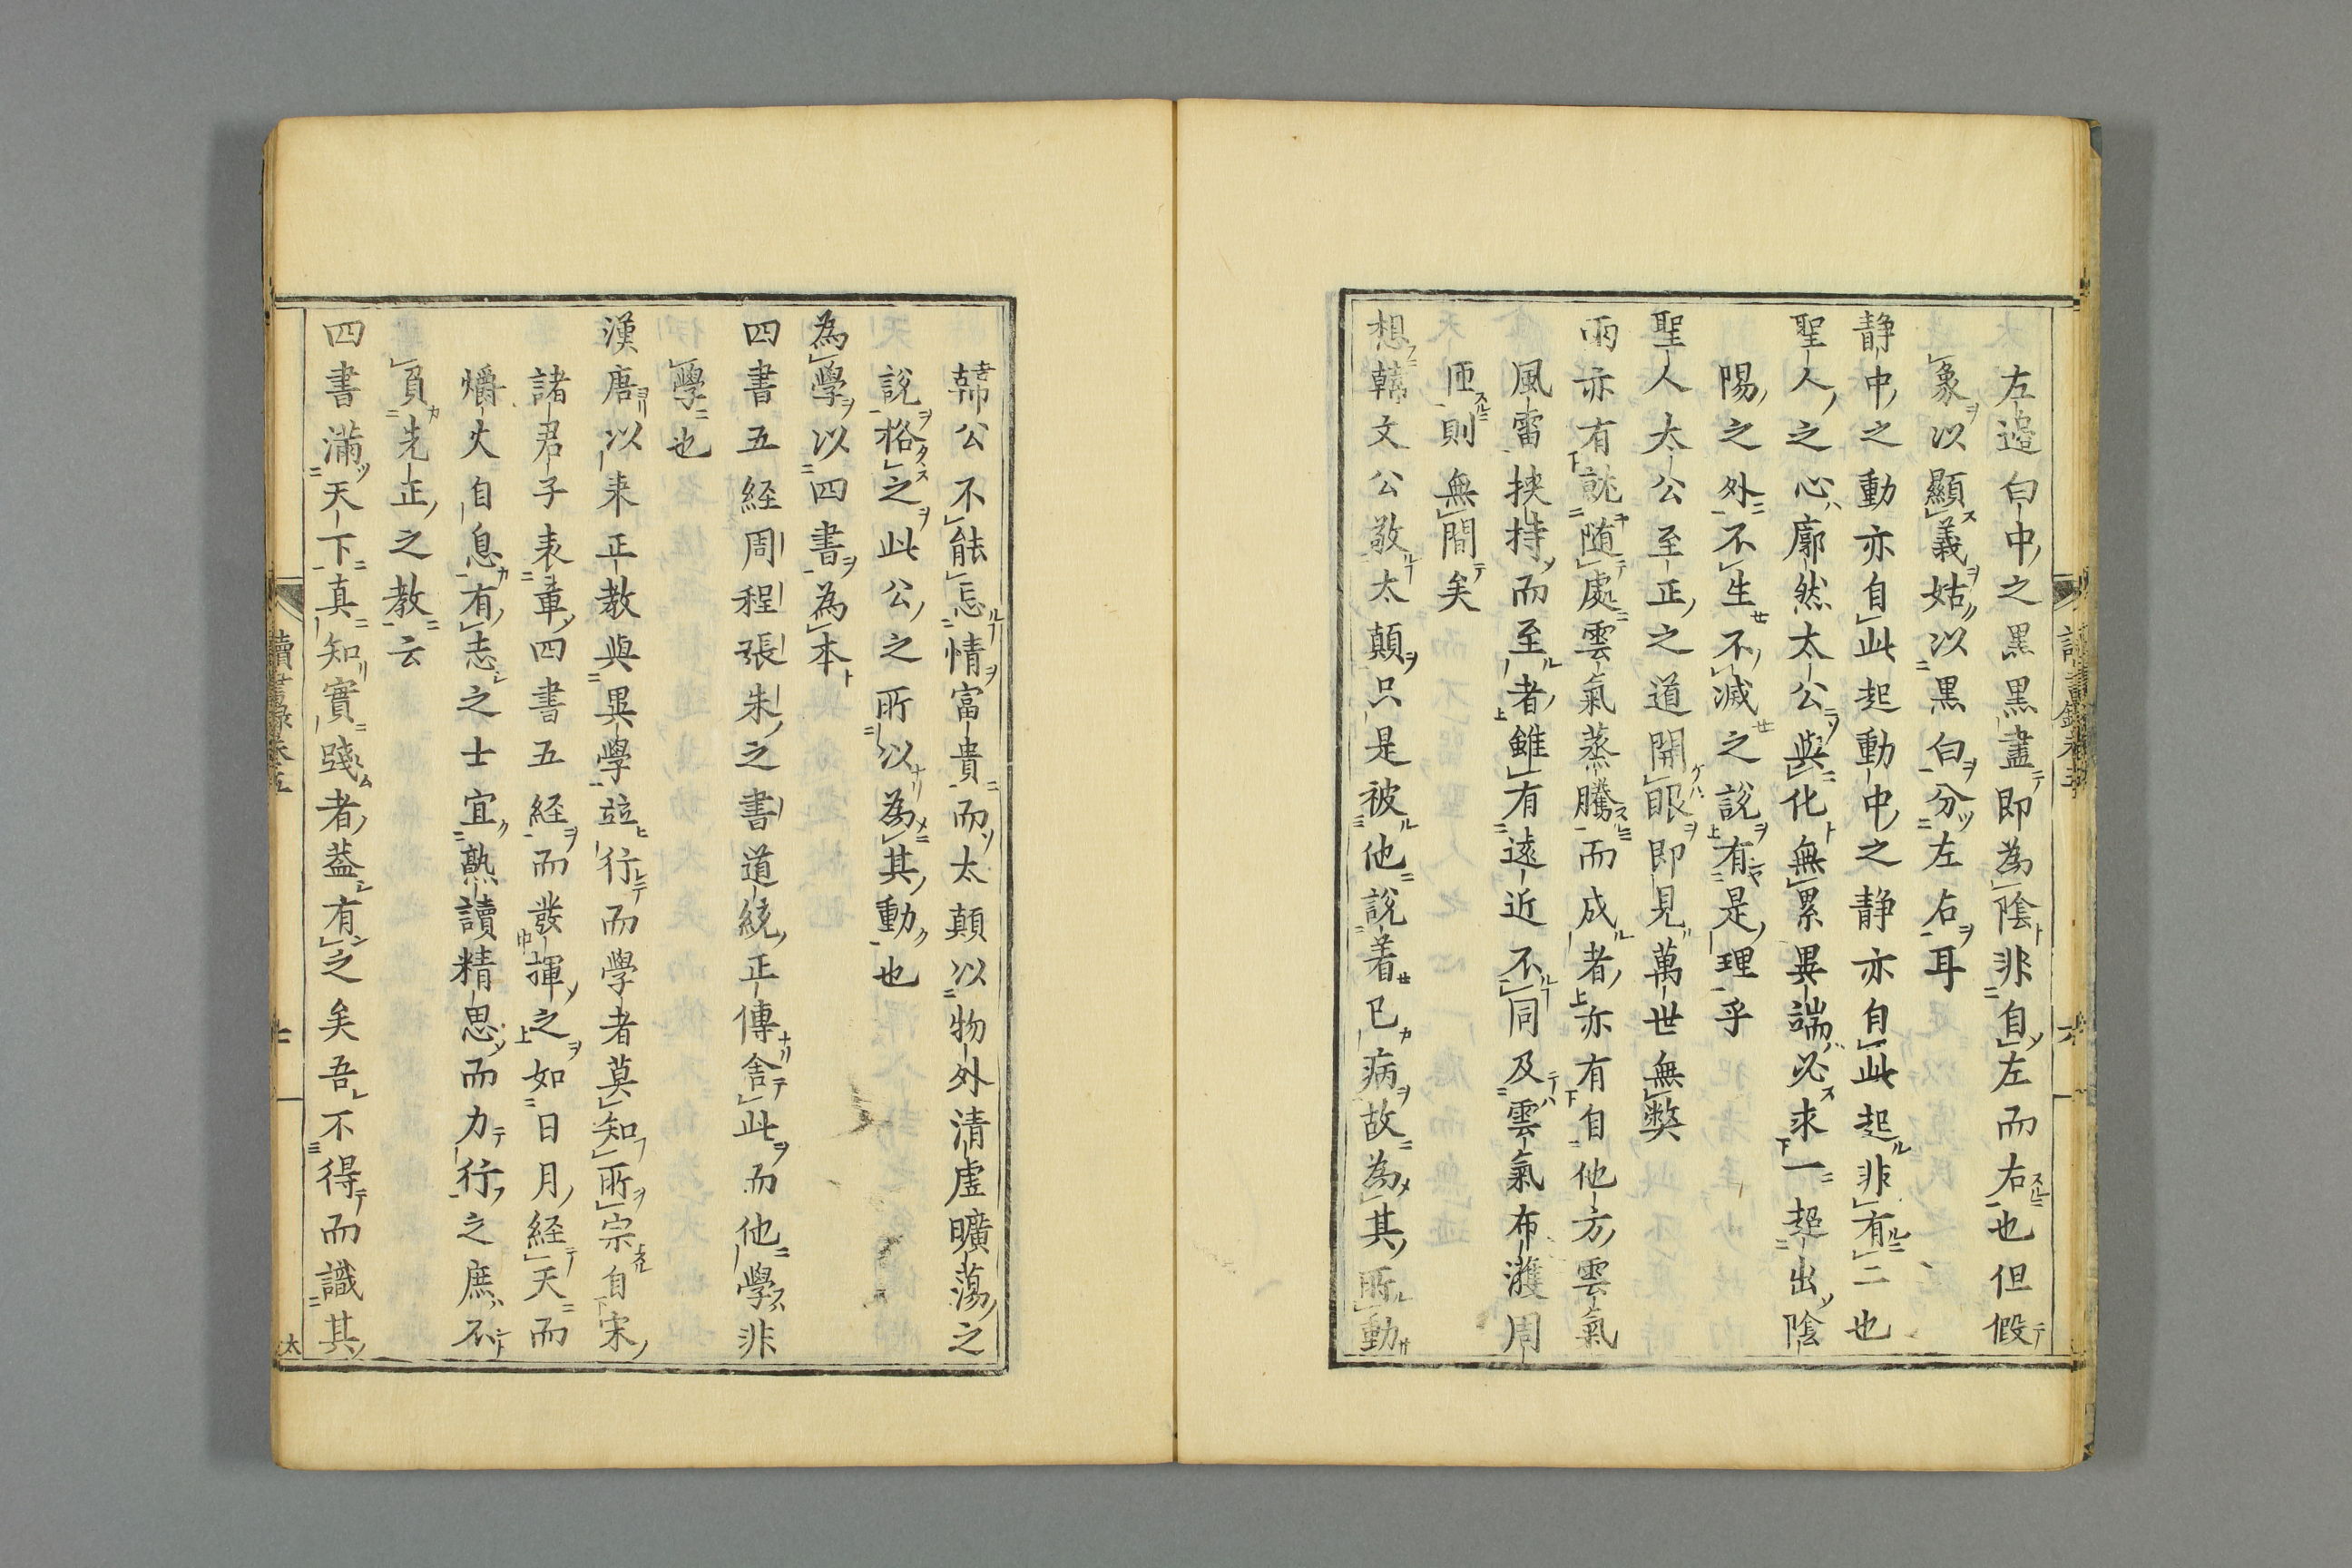 左邉白中之黒黒盡即為陰非自左而右也但假
象以顯義姑以黒白分左右耳
静中之動亦自此起動中之静亦自此起非有二也
聖人之心廓然太公與化無累異端必求一超出陰
陽之外不生不滅之說有是理乎
聖人太公至正之道開眼即見萬世無弊
雨亦有就随處雲氣蒸騰而成者亦有自他方雲氣
風雷挾持而至者雖有遠近不同及雲氣布濩周
匝則無間矣
想韓文公敬太顛只是被他說着已病故為其所動
韓公不能忘情富貴而太顛以物外清虚曠蕩之
說格之此公之所以為其動也
為學以四書為本
四書五経周程張朱之書道統正傳舎此而他學非
學也
漢唐以来正教與異學竝行而學者莫知所宗自宋
諸君子表章四書五経而發揮之如日月経天而
爝火自息有志之士宜熟讀精思而力行之庶不
負先正之教云
四書滿天下真知實踐者葢有之矣吾不得而識其
讀書録巻五